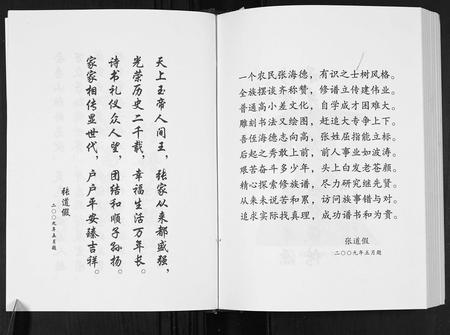 天上玉帝人间王，张家从来都盛强，
光荣历史二千载，幸福生活万年长。
诗书礼仪众人望，团结和顺子孙扬。
家家相传显世代，户户平安臻吉祥。
张道假
二〇〇九年五月题
一个农民张海德，有识之士树风格。
全族摆谈齐称赞，修谱立传建伟业。
普通高小差文化，自学成才困难大。
雕刻书法又绘图，赶追大专争上下。
吾侄海德志向高，张姓屈指能立标。
后起之秀敢上前，前人事业如波涛。
艰苦奋斗多少年，头上白发老苍颜。
精心探索修族谱，尽力研究继先贤。
从来未说苦和累，访问族事错与对。
追求实际找真理，成功谱书和为贵。
张道假
二〇〇九年五月题